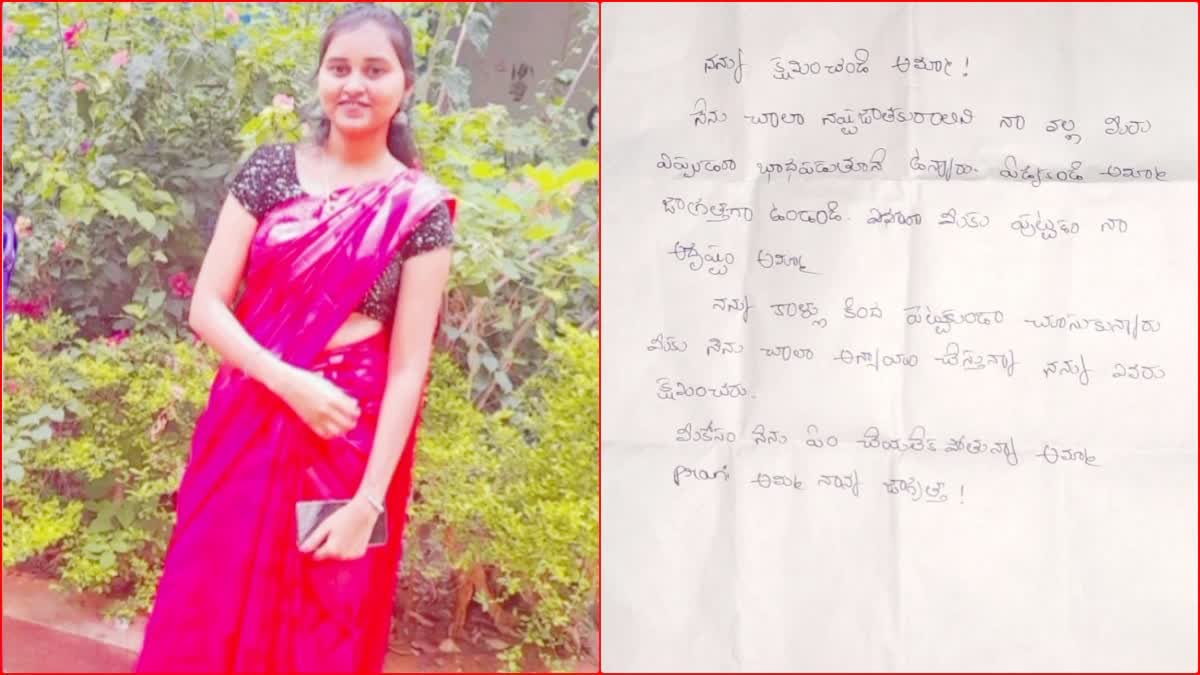 నన్ను క్షమించండి అమ్మా!
నేను చాలా నష్టజాతకురాలిని నా వల్ల మీరు
ఎప్పుడూ భాధపడుతూనే ఉన్నారు. ఏడ్వకండి అమ్మా
జాగ్రత్తగా ఉండండి. మీకు పుట్టటం నా
అదృష్టం అమ్మా
నన్ను కాళ్లు కింద పెట్టకుండా చూసుకున్నారు
మీకు నేను చాలా అన్యాయం చేస్తున్నా నన్ను ఎవరు
క్షమించరు.
మీకోసం నేను ఏం చేయలేక పోతున్నా అమ్మా
అమ్మ నాన్న జాగ్రత్త!